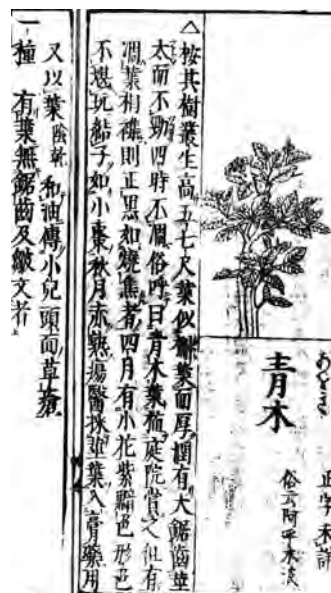 あをき
青木
正字未詳
俗云阿乎木
△按其樹叢生高五七尺葉似 葉而厚潤有大鋸齒莖
太而不勁四時不凋俗呼曰青木栽 庭院賞之但有
凋葉相襍則正黒如燒焦者四月有小花紫 色形色
不堪玩結子如小棗秋月赤熟瘍醫採莖葉入膏藥用
又以葉陰乾和油傳小兒頭面草瘡
一種有葉無鋸齒及皺文者